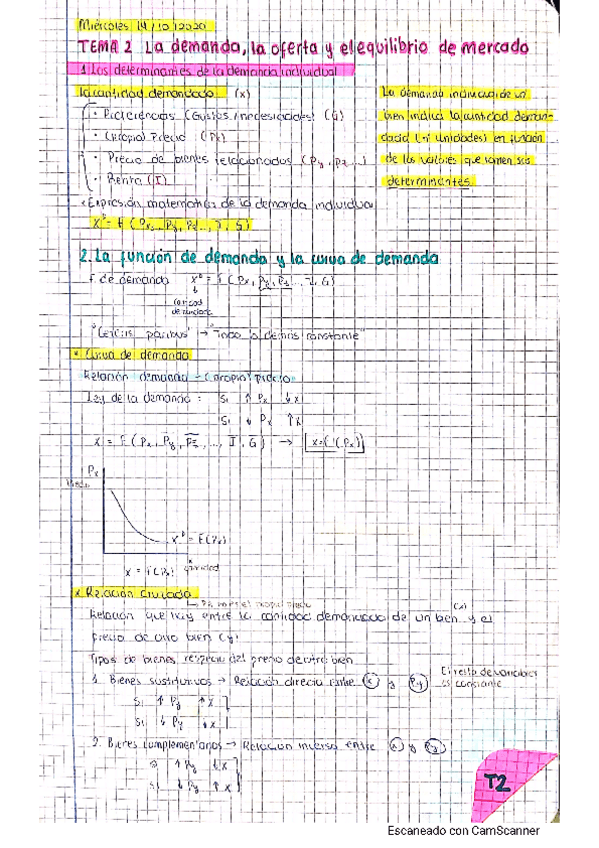 Miércoles 14/10/2020
TEMA 2 La demanda, la oferta y el equilibrio de mercado
1. Los determinantes de la demanda individual
La cantidad demandada (x)
· Preferencias (Gustos/necesidades) (G)
· (Propio) Precio (Px)
· Precio de bienes relacionados (Py, Pz...)
· Renta (I)
La demanda individual de un
bien indica la cantidad deman-
dada (nº unidades) en función
de los valores que tomen sus
determinantes.
Expresión matemática de la demanda individual
2. La función de demanda y la curva de demanda
F. de demanda
cantidad
demandada
"Ceteris paribus" → "Todo lo demás constante"
* Curva de demanda
Relación demanda - (propio) precio
Ley de la demanda: Si ↑ Px ↓ x
Si ↓ Px ↑ x
x = f (Px, Py, Pz, ..., I, G) → x = f (Px)
Px
xᴰ = f(Px)
x = f(Px) cantidad
* Relación cruzada
Relación que hay entre la cantidad demandada de un bien y el (x)
precio de otro bien (y)
Tipos de bienes respecto del precio de otro bien
1. Bienes sustitutivos → Relación directa entre (x) y (Py)
El resto de variables
es constante
Si ↑ Py ↑ x
Si ↓ Py ↓ x
2. Bienes complementarios → Relación inversa entre (x) y (Py)
Si ↑ Py ↓ x
Si ↓ Py ↑ x
T2
Escaneado con CamScanner